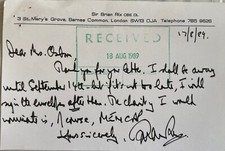 Sir Brian Rix CBE DL
3 St. Mary's Grove, Barnes Common, London SW13 0JA. Telephone 785 9626
17/8/89.
RECEIVED
18 AUG 1989
Dear Ms. Osborn
Thank you for your letter. I shall be away
until September 14th but if it's not too late, I will
sign the envelopes after then. The charity I would
nominate is, of course, MENCAP
Yours sincerely,